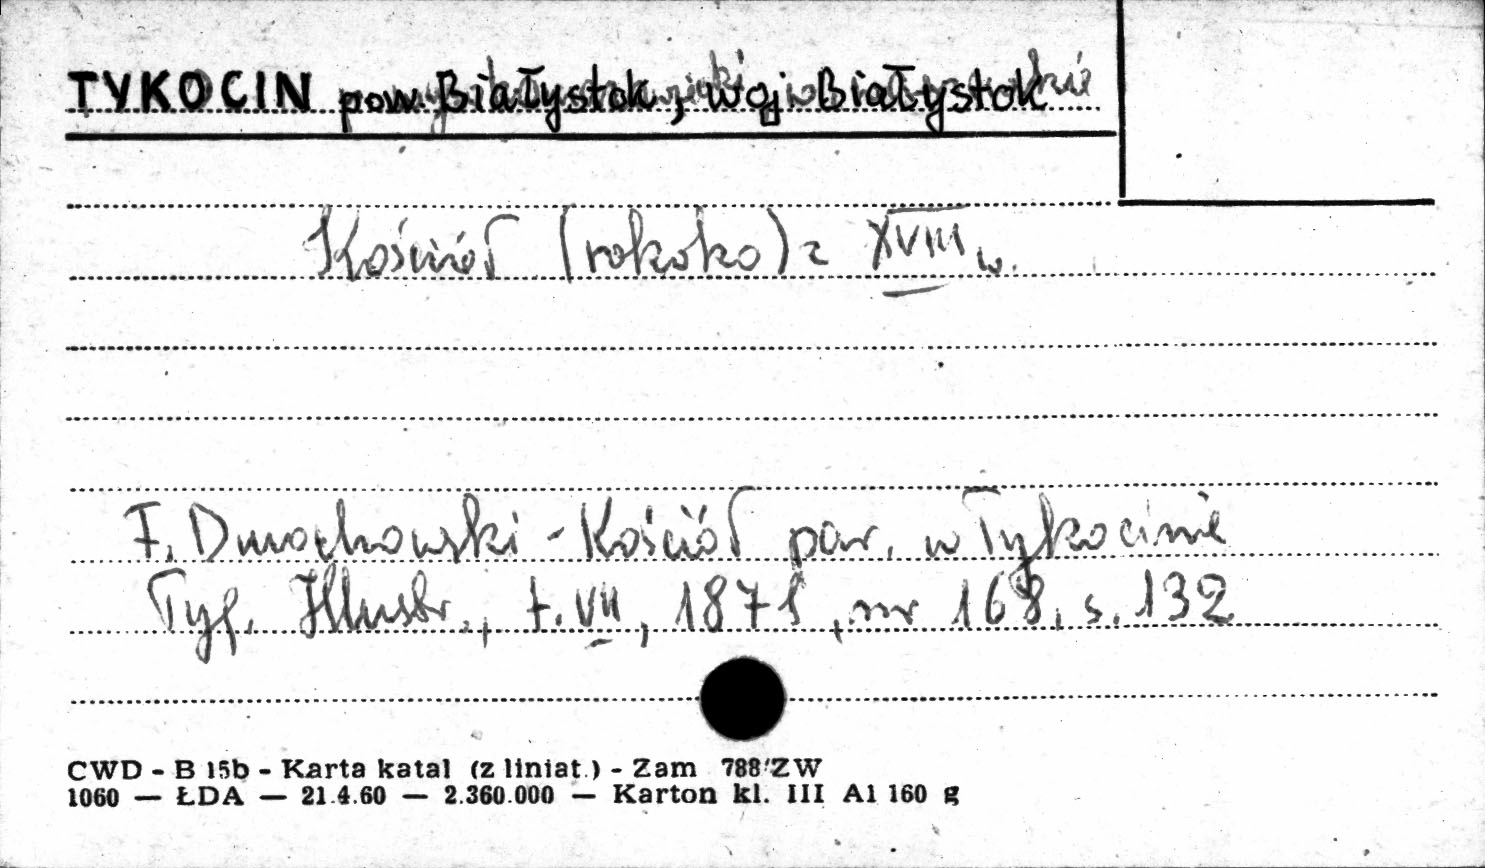 TYKOCIN pow. Białystok, woj. Białystok
Kościół (rokoko) z XVIII w.
F. Dmochowski - Kościół par. w Tykocinie
Tyg. Illustr., t. VII, 1871, nr 168, s. 132
CWD - B 15b - Karta katal (z liniat.) - Zam 788/ZW
1060 — ŁDA — 21.4.60 — 2.360.000 — Karton kl. III A1 160 g